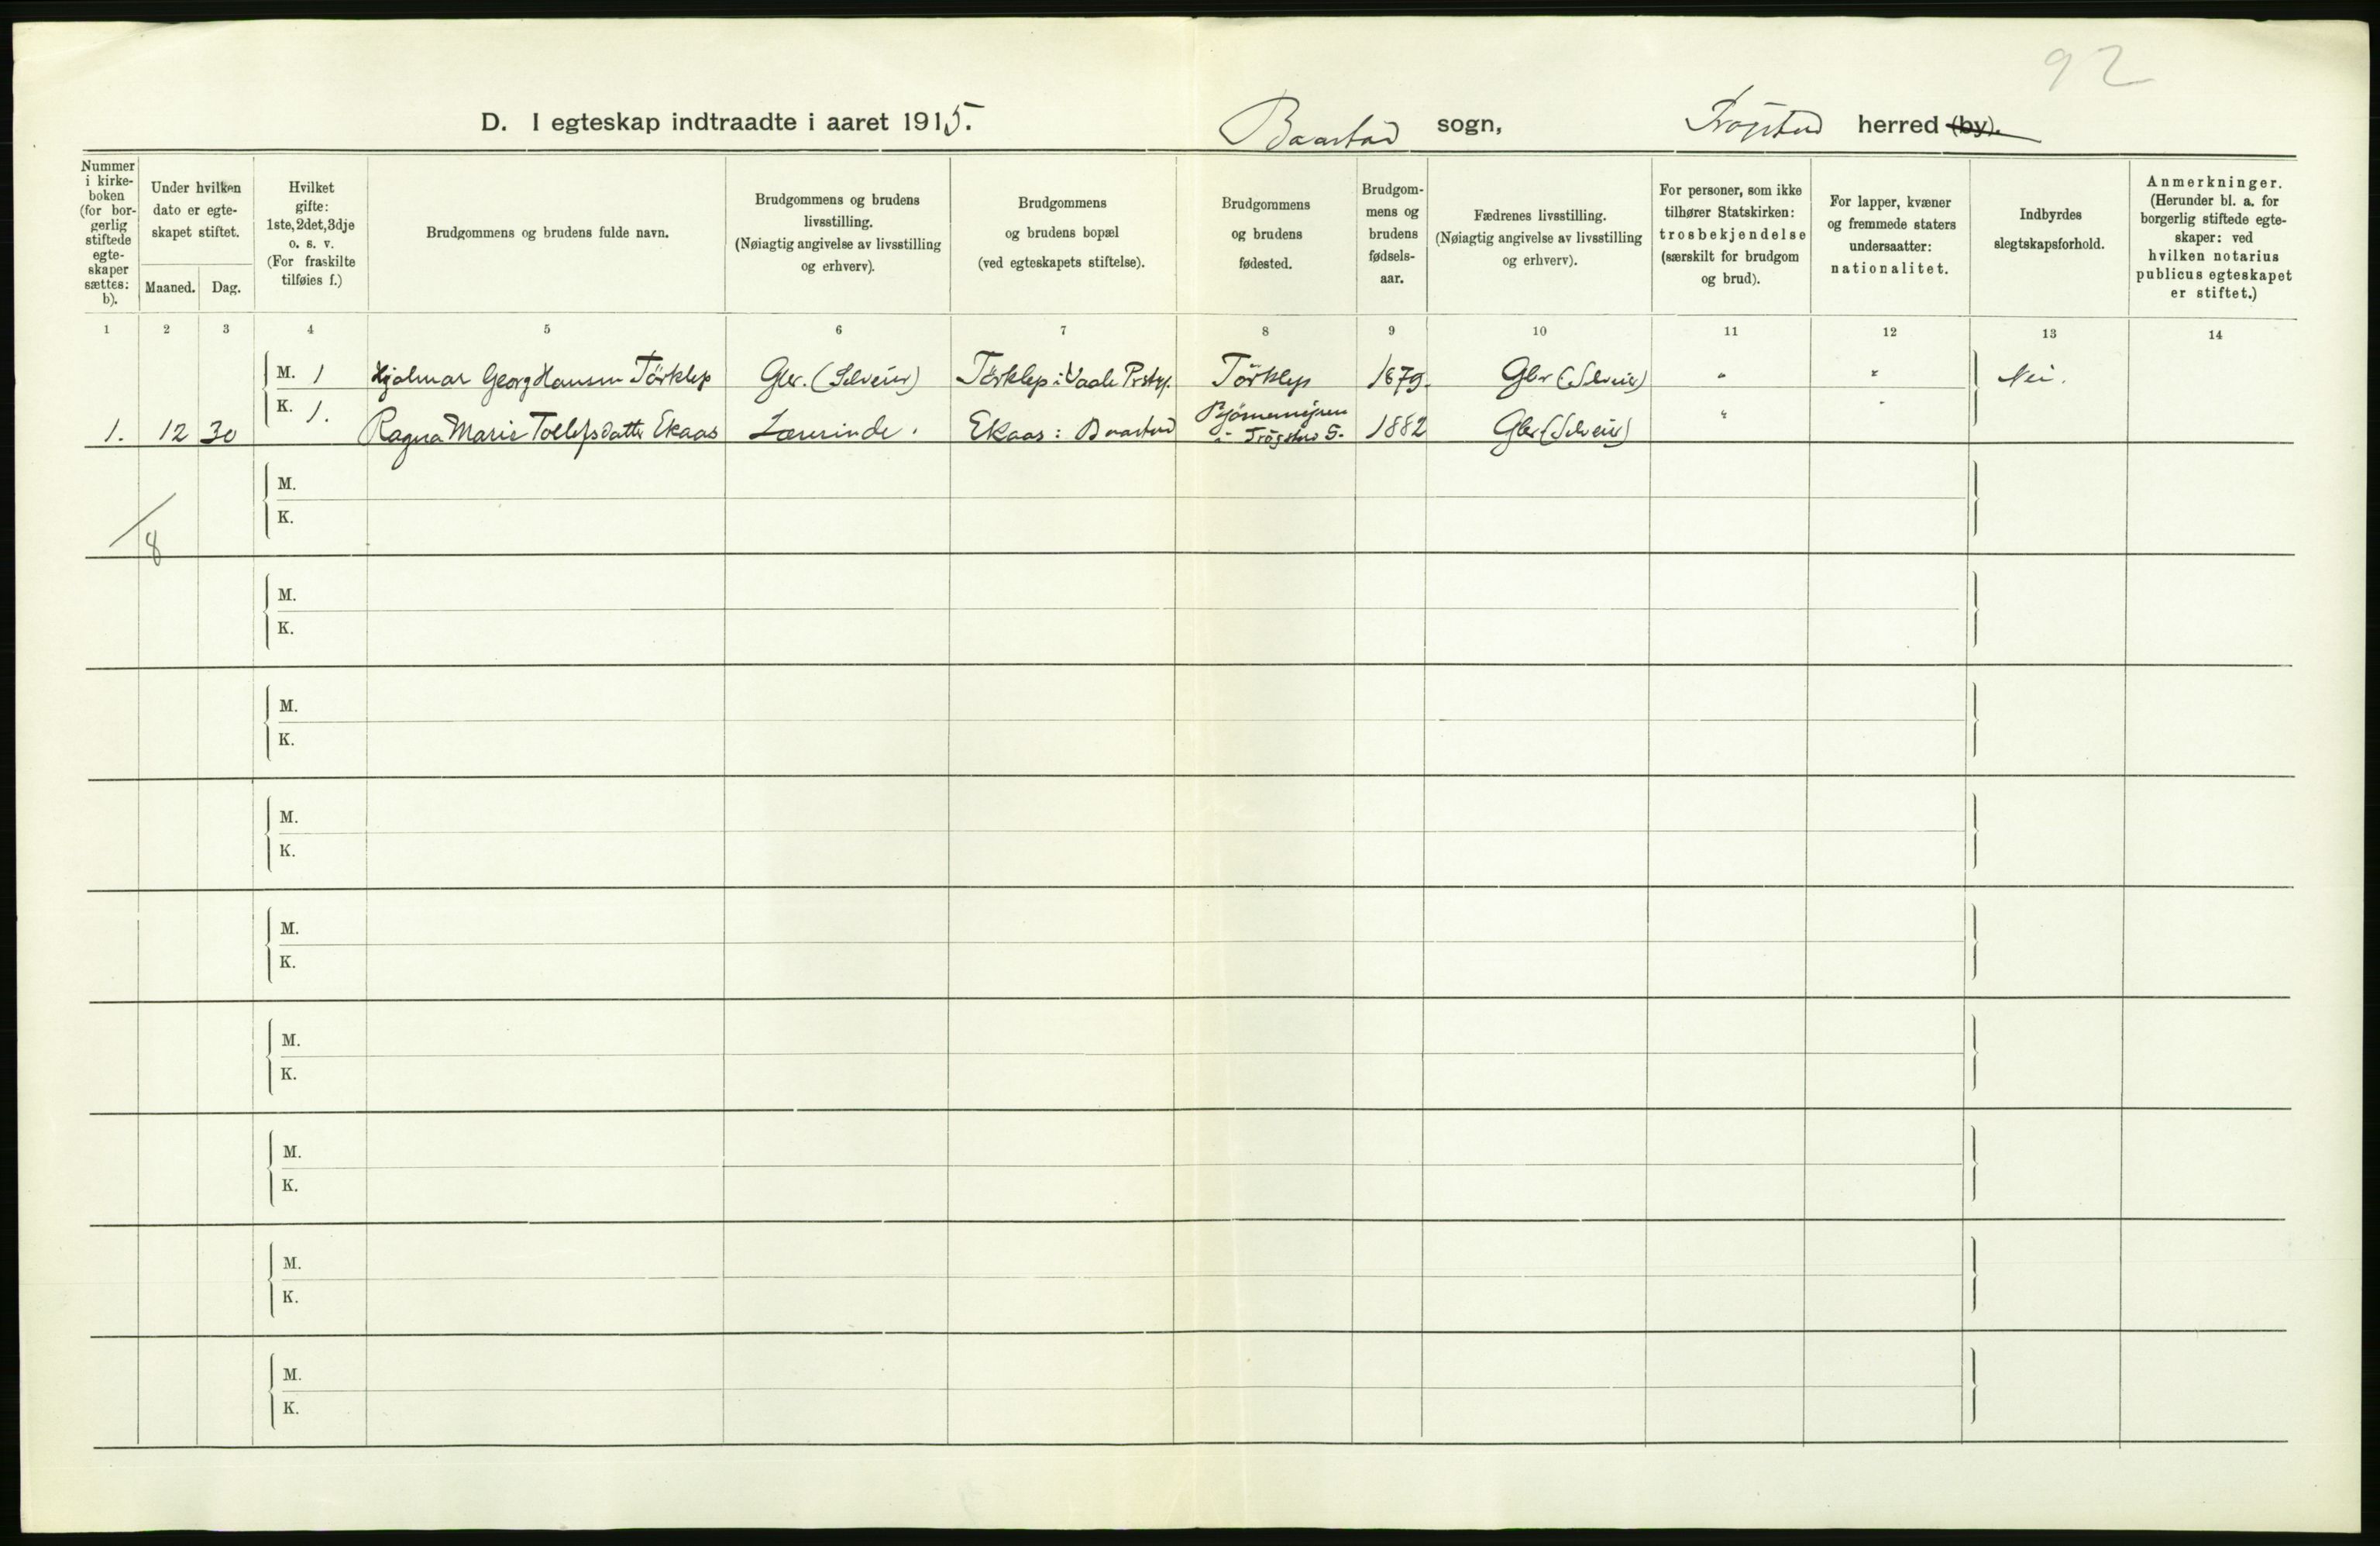 92
D. I egteskap indtraadte i aaret 1915. Baastad sogn, Trögstad herred (by).
Nummer i kirkeboken (for borgerlig stiftede egteskaper sættes: b).
Under hvilken dato er egteskapet stiftet.
Maaned. Dag.
Hvilket gifte: 1ste, 2det, 3dje o. s. v. (For fraskilte tilføies f.)
Brudgommens og brudens fulde navn.
Brudgommens og brudens livsstilling. (Nøiagtig angivelse av livsstilling og erhverv).
Brudgommens og brudens bopæl (ved egteskapets stiftelse).
Brudgommens og brudens fødested.
Brudgommens og brudens fødselsaar.
Fædrenes livsstilling. (Nøiagtig angivelse av livsstilling og erhverv).
For personer, som ikke tilhører Statskirken: trosbekjendelse (særskilt for brudgom og brud).
For lapper, kvæner og fremmede staters undersaatter: nationalitet.
Indbyrdes slegtskapsforhold.
Anmerkninger. (Herunder bl. a. for borgerlig stiftede egteskaper: ved hvilken notarius publicus egteskapet er stiftet.)
1 2 3 4 5 6 7 8 9 10 11 12 13 14
M. 1 Hjalmar Georg Hansen Törklep Gbr. (Selveier) Törklep i Vaale Prstgj. Törklep 1879. Gbr (Selveier) " " Nei.
1. 12 30 K. 1. Ragna Marie Tollefsdatter Ekaas Lærerinde. Ekaas i Baastad i Trögstad S. 1882 Gbr (Selveier) " "
M.
K.
1/8
M.
K.
M.
K.
M.
K.
M.
K.
M.
K.
M.
K.
M.
K.
M.
K.